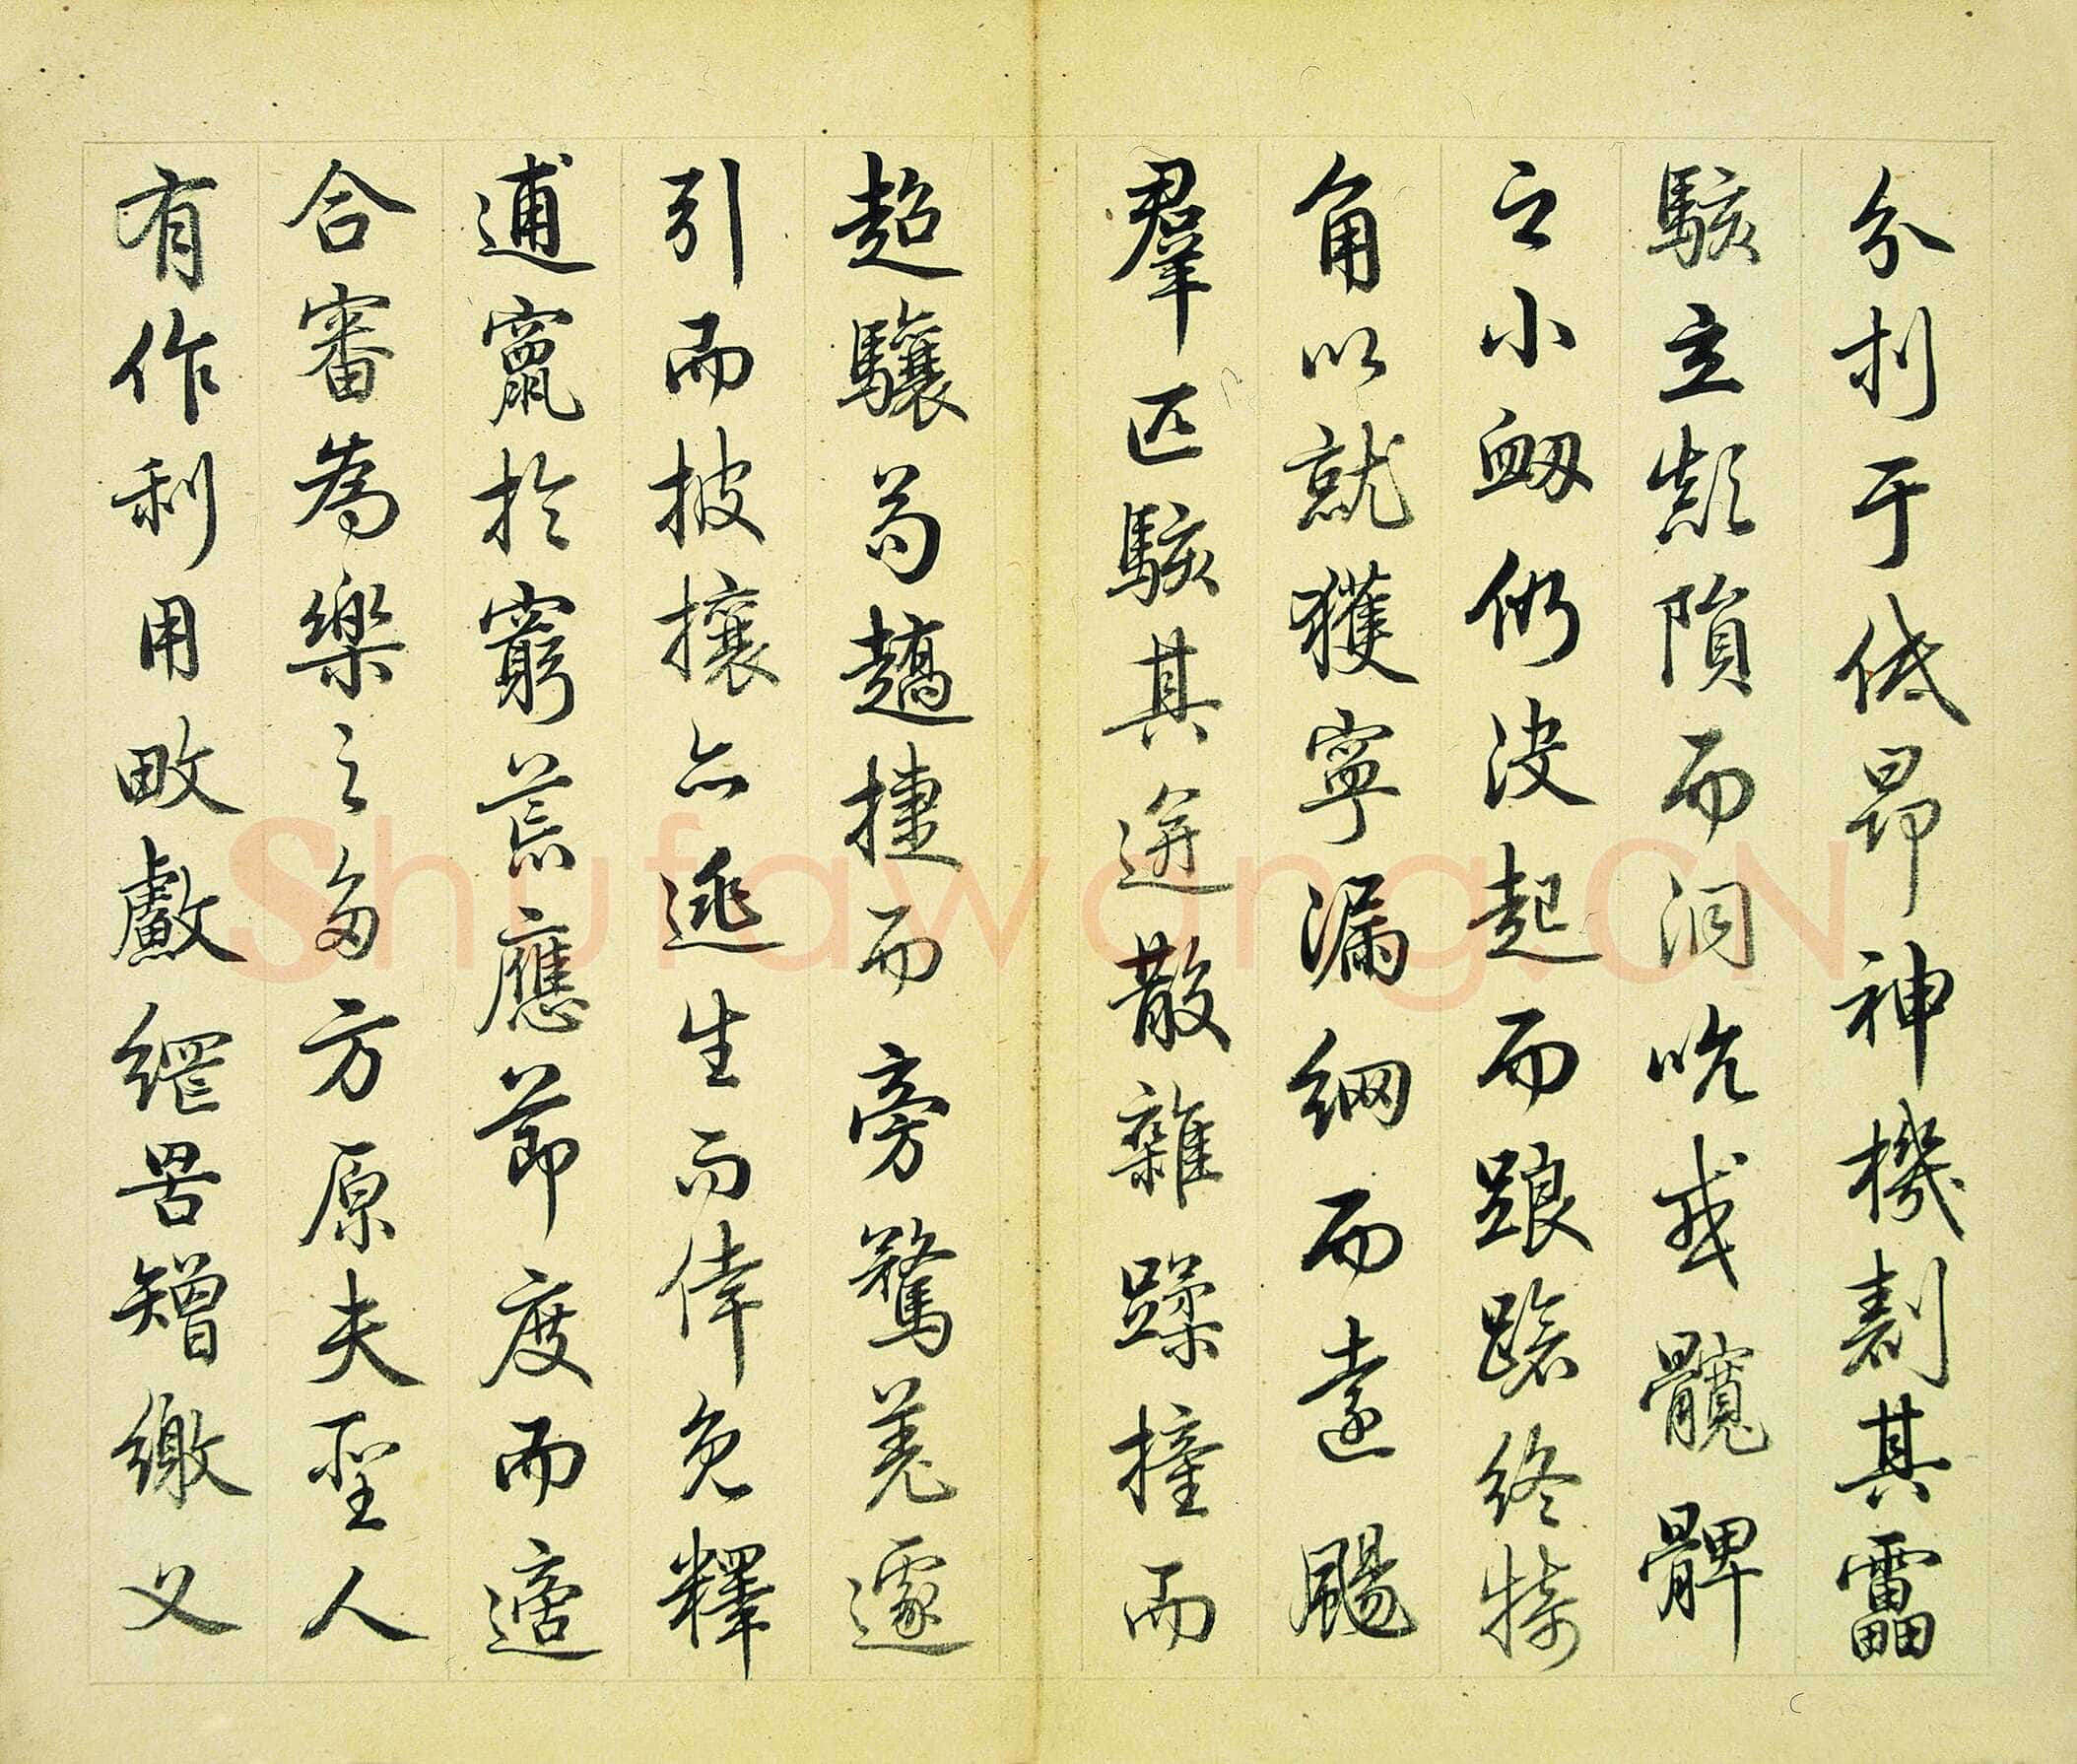 分刌于低昂神機劃其靁
駭立顛隕而洞吭或髖髀
之小衂仍決起而踉蹌終犄
角以就獲寧漏網而遠颺
羣匹駭其迸散雜蹂撞而
超驤茍趫捷而旁騖羌邃
引而披攘亦逃生而倖免釋
逋竄於窮荒應節度而適
合審為樂之多方原夫聖人
有作利用畋䱷繼罟矰繳乂
Shufawang.CN